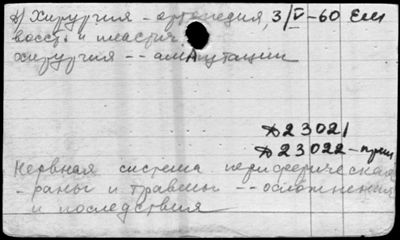 в) Хирургия - ортопедия, 3/V-60 Емм
восст. и пластич.
хирургия -- ампутации
Д23021
Д23022-прил
Нервная система периферическая
- раны и травмы -- осложнения
и последствия